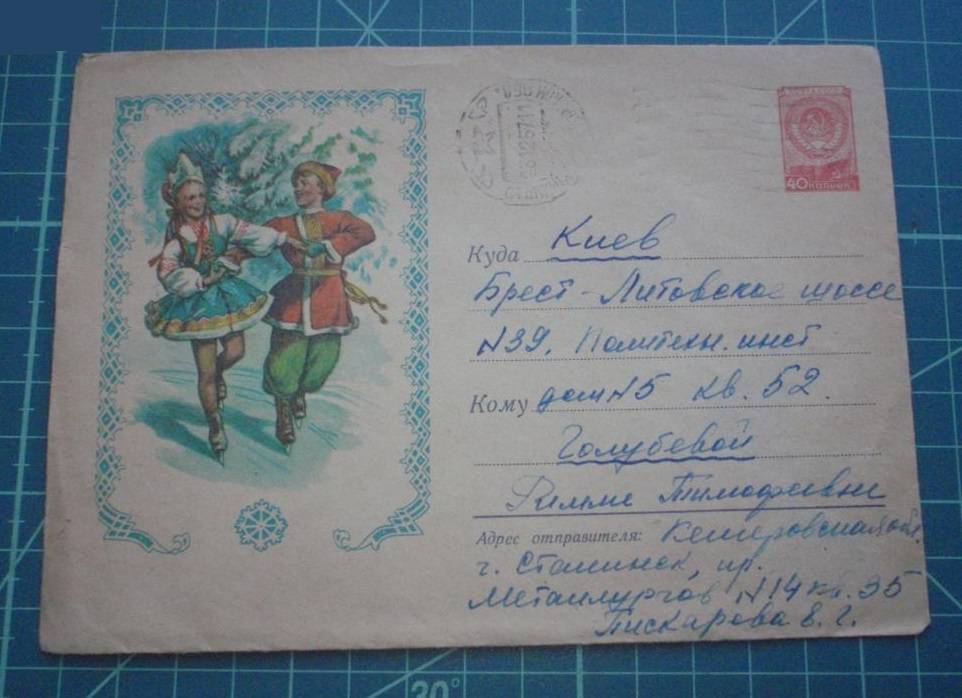 ПОЧТА СССР
40 КОПЕЕК
26.12.57 11
Куда Киев
Брест-Литовское шоссе
№39. Политехн. инст
Кому дом №5 кв. 52.
Голубевой
Римме Тимофеевне
Адрес отправителя: Кемеровская обл.
г. Сталинск, пр.
Металлургов №14 кв. 35
Пискарова Е. Г.
30°